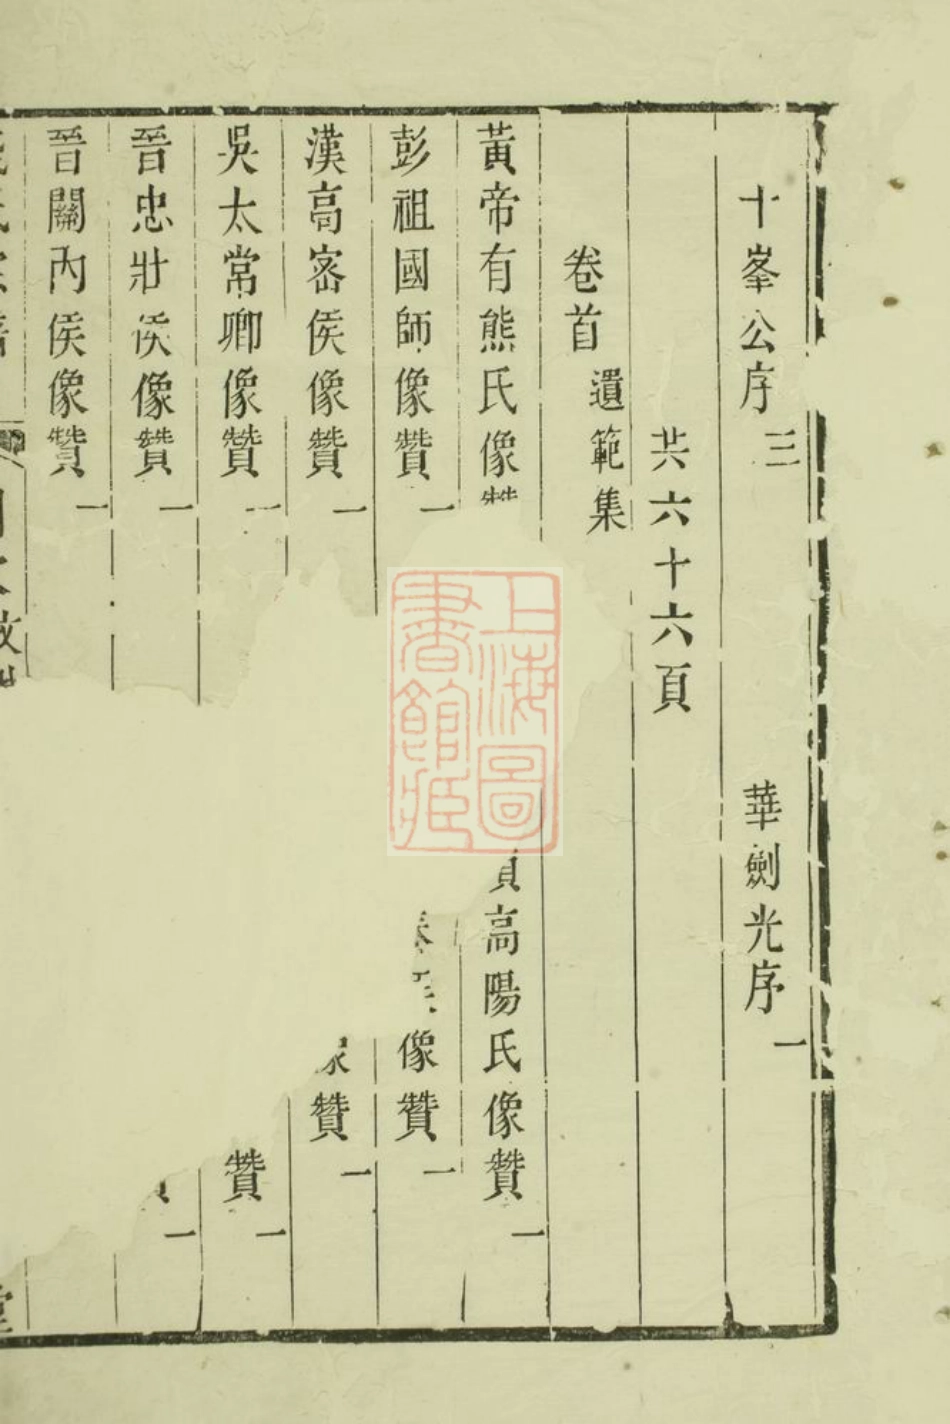 十峯公序 三 華劍光序 一
共六十六頁
卷首 遺範集
黃帝有熊氏像贊 頊高陽氏像贊 一
彭祖國師像贊 一 像贊 一
漢高密侯像贊 一 像贊 一
吳太常卿像贊 一 贊 一
晉忠壯侯像贊 一 一
晉關內侯像贊 一
上海圖書館藏